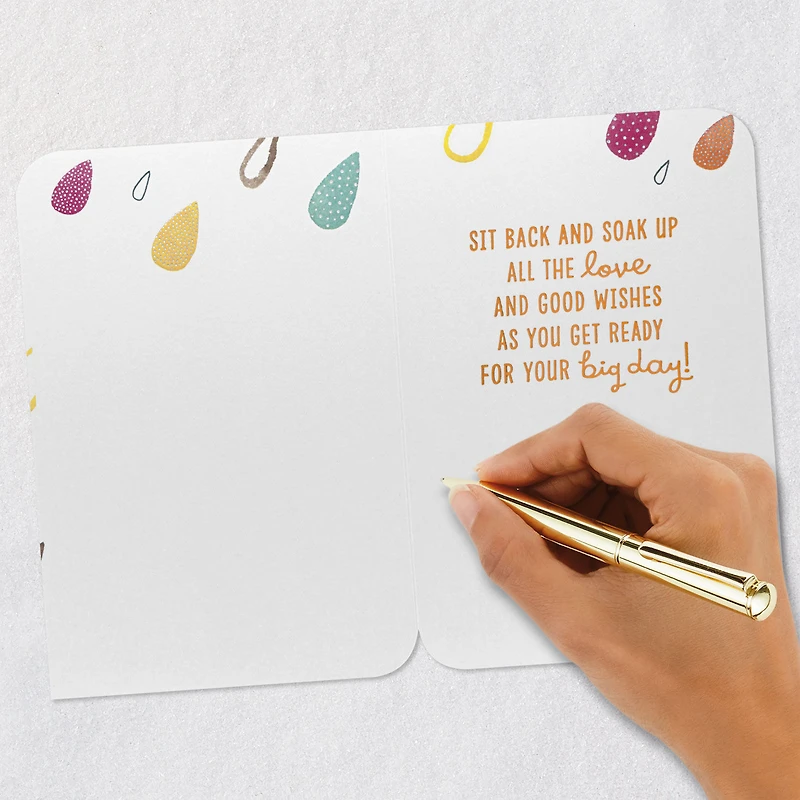 SIT BACK AND SOAK UP
ALL THE love
AND GOOD WISHES
AS YOU GET READY
FOR YOUR big day!